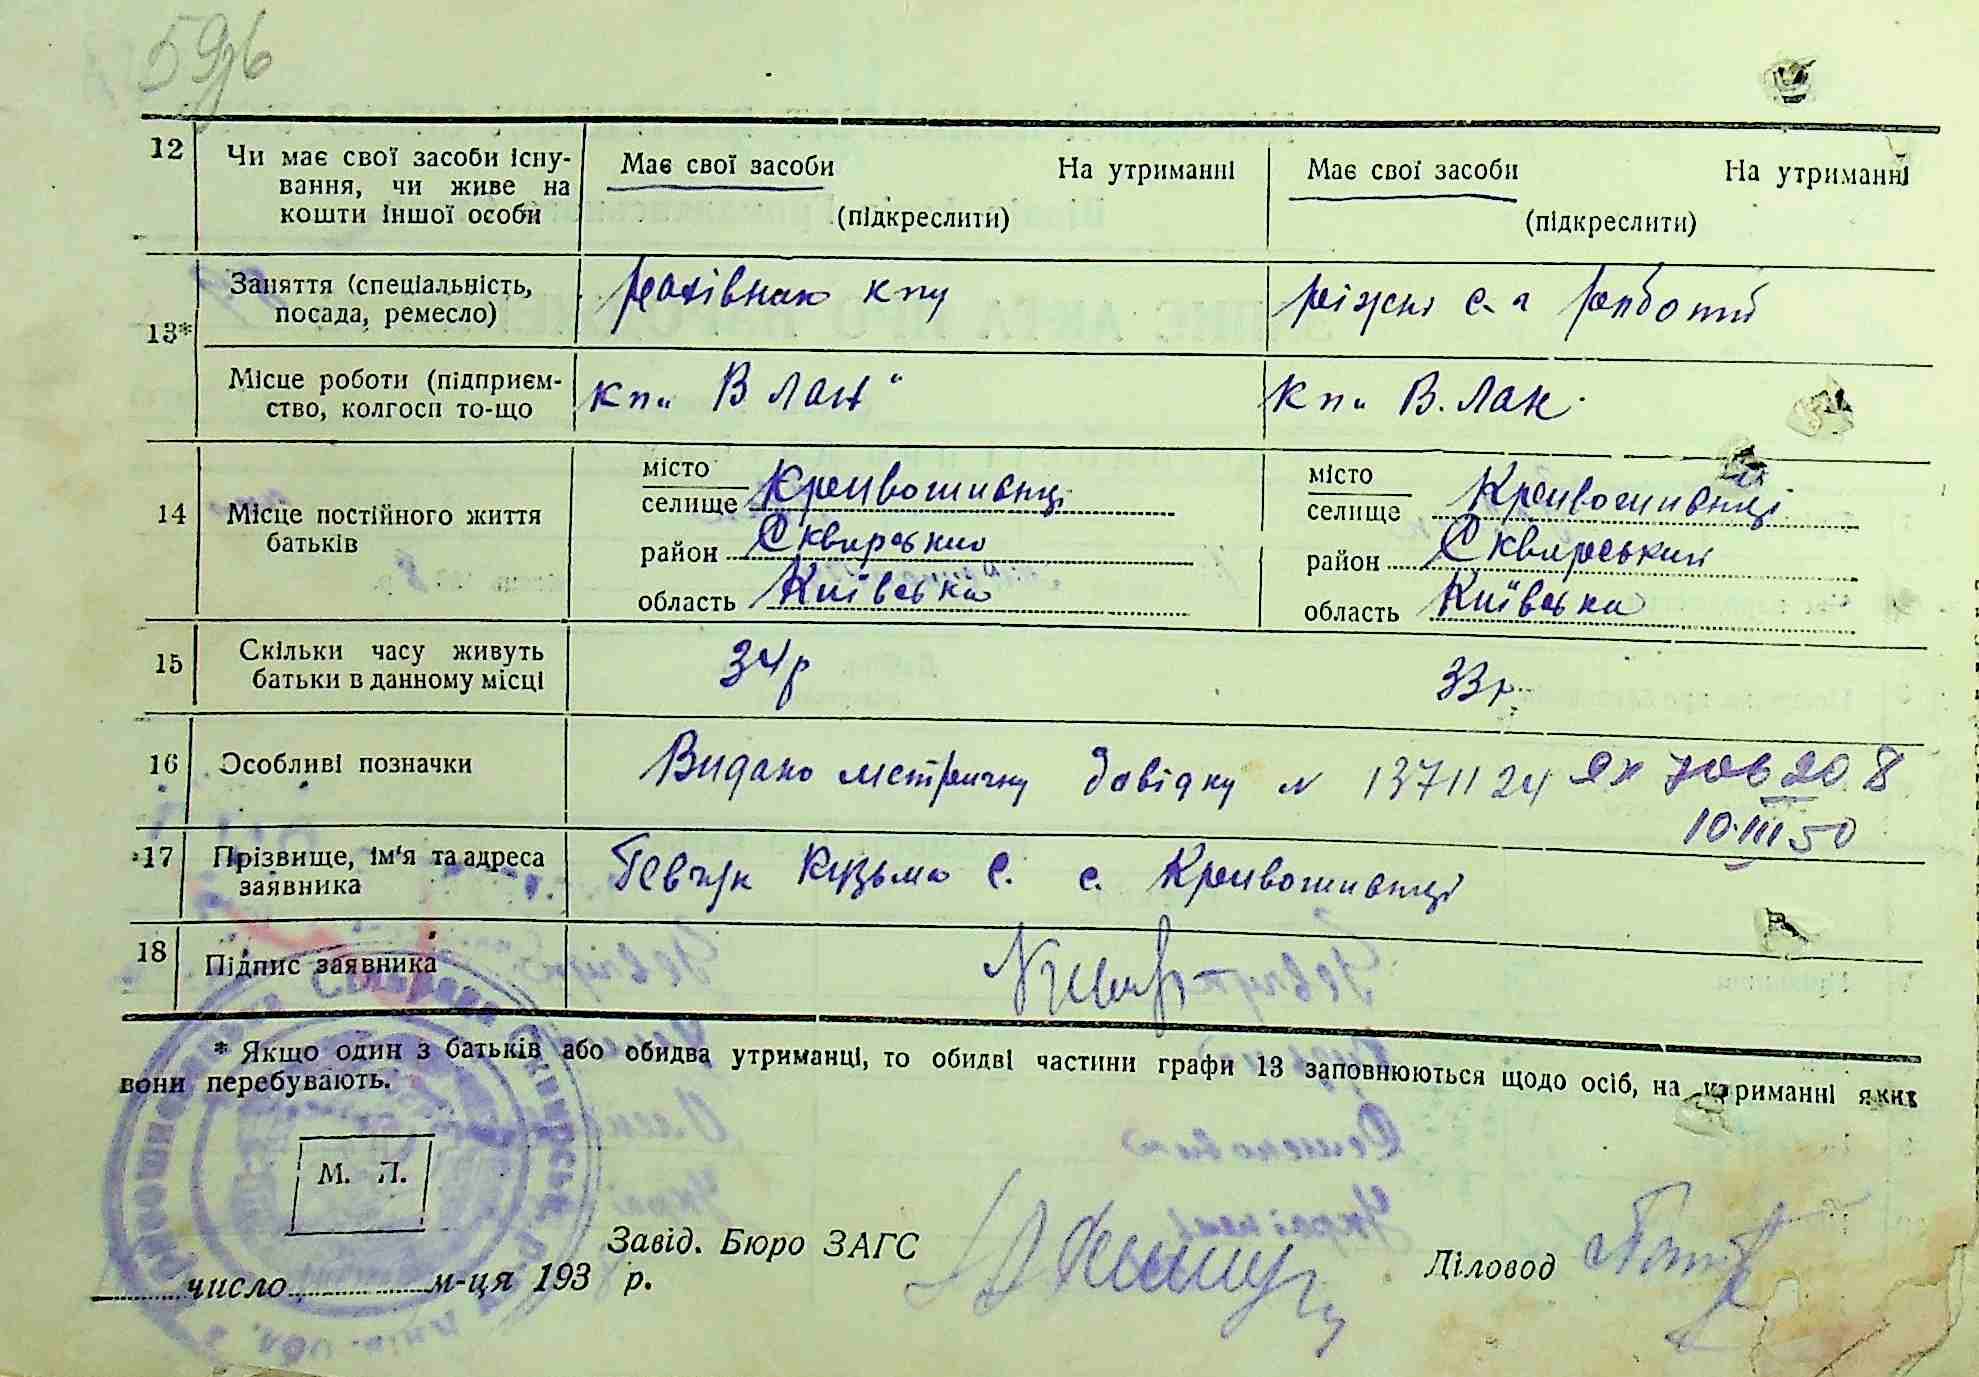 12 Чи має свої засоби існу-
вання, чи живе на
кошти іншої особи
Має свої засоби На утриманні
(підкреслити)
Має свої засоби На утриманні
(підкреслити)
13* Заняття (спеціальність,
посада, ремесло)
рахівник кпу
ріжні с. г роботи
Місце роботи (підприєм-
ство, колгосп то-що
кп. В Лан"
кп. В. Лан.
14 Місце постійного життя
батьків
місто
селище Кривошиинці
район Сквирський
область Київська
місто
селище Кривошиинці
район Сквирський
область Київська
15 Скільки часу живуть
батьки в данному місці
34р
33р.
16 Особливі позначки
Видано метричну довідку N 1371124
10.III 50
17 Прізвище, ім'я та адреса
заявника
Кузьма С. с. Кривошиинці
18 Підпис заявника
* Якщо один з батьків або обидва утриманці, то обидві частини графи 13 заповнюються щодо осіб, на утриманні яких
вони перебувають.
М. П.
число м-ця 193 р.
Завід. Бюро ЗАГС
Діловод